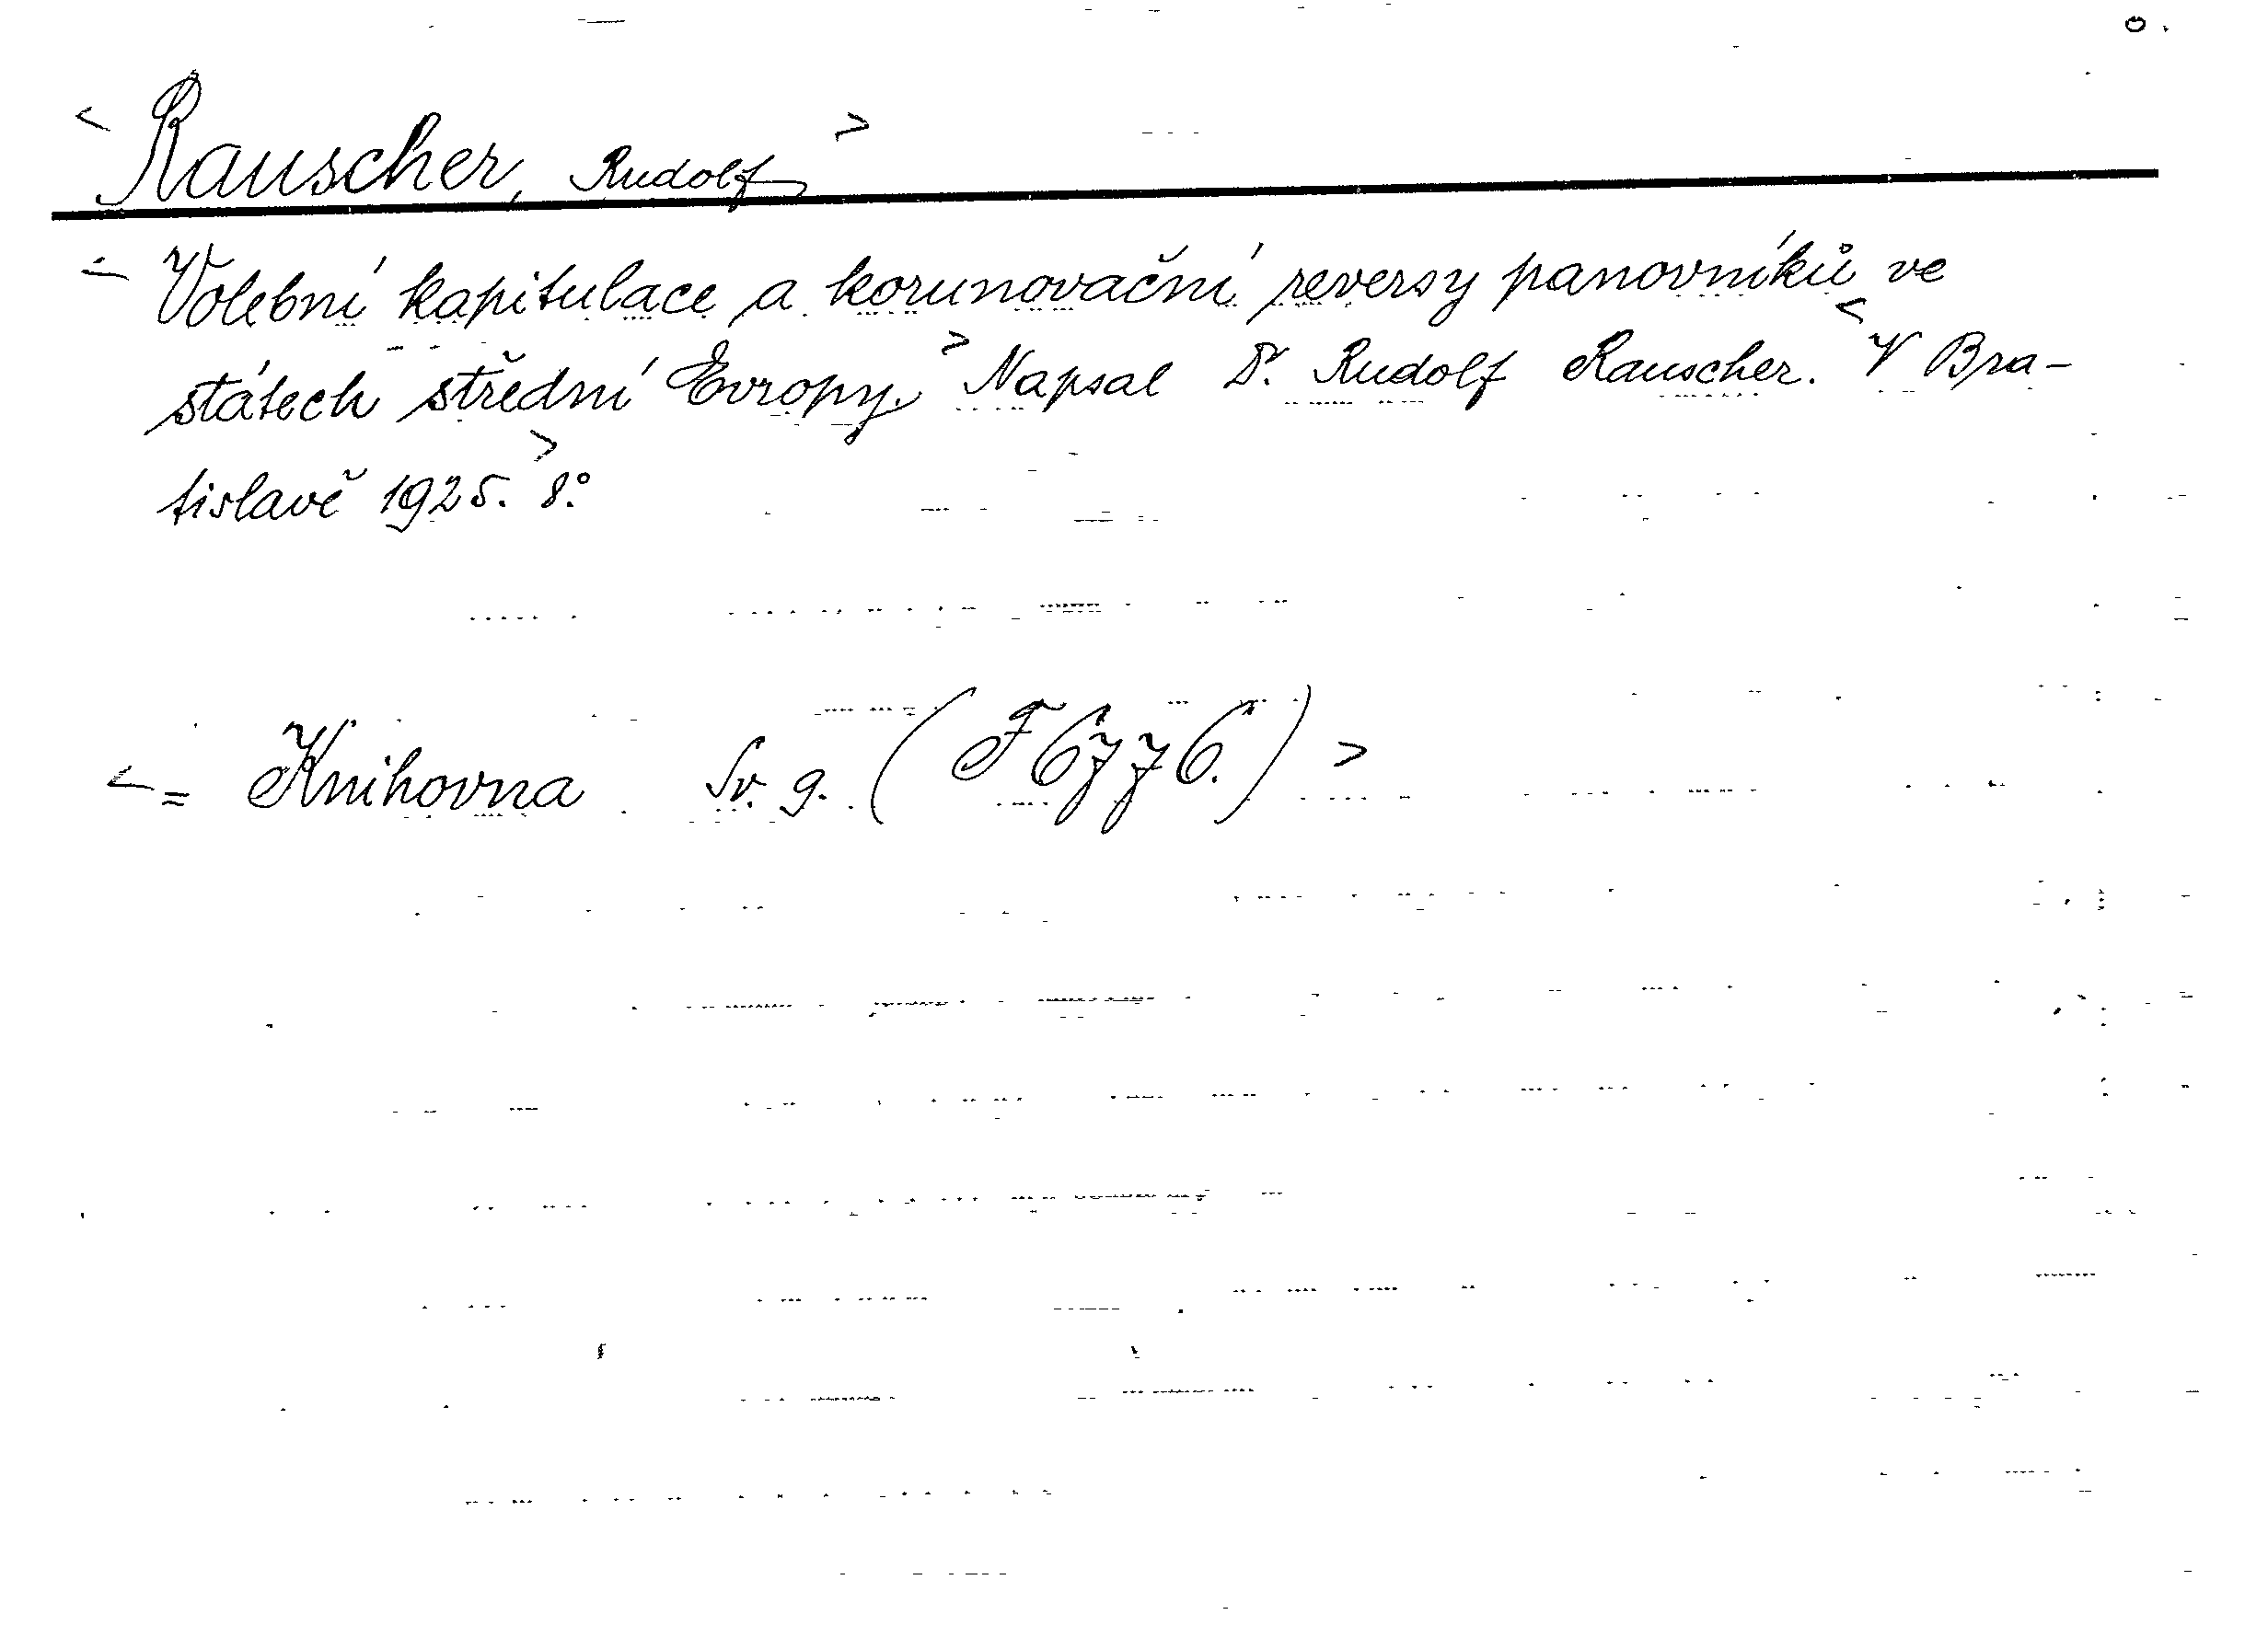 < Rauscher, Rudolf >
< Volební kapitulace a korunovační reversy panovníků ve
státech střední Evropy. > Napsal Dr. Rudolf Rauscher. < V Bra-
tislavě 1925. > 8°.
< = Knihovna Sv. 9. (F 6776.) >